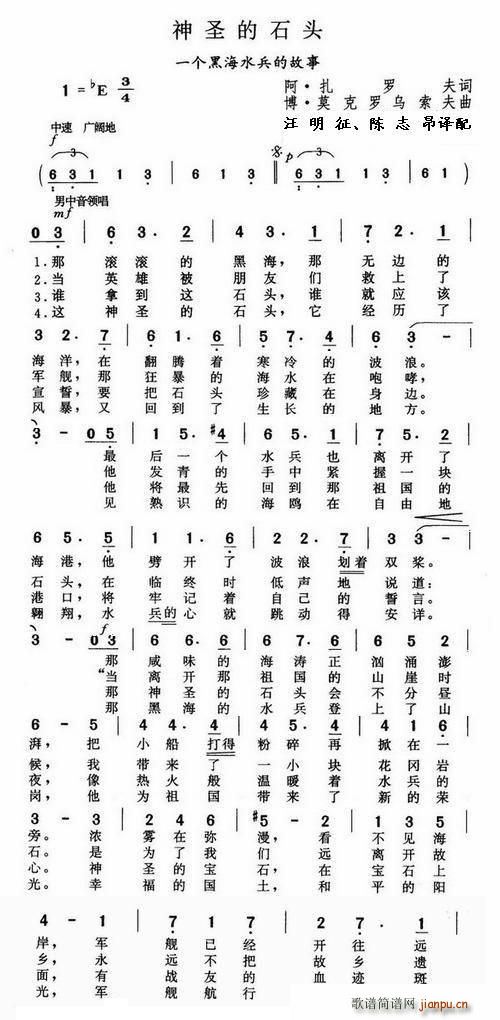 神圣的石头
一个黑海水兵的故事
1 = ♭E 3/4
阿·扎罗夫词
博·莫克罗乌索夫曲
汪明征、陈志昂译配
中速 广阔地
f
p
( 6 3 1 | 1 3 | 6 3 1 | 1 3 | 6 1 ) |
男中音领唱
mf
0 3 | 6 3. 2 | 4 3. 3 | 7 2. 1 |
1. 那 滚滚的 黑海，那 无边的
2. 当 英雄被 朋友们 救上了
3. 谁 拿到这 石头，谁 就应该
4. 这 神圣的 石头，它 经历了
3 2. 7 | 6 1. 6 | 5 7. 4 | 6 3 - |
海洋，在 翻腾着 寒冷的 波浪。
军舰，那 狂暴的 海水在 咆哮，
宣誓，要 把石头 珍藏在 身边。
风暴，又 回到了 生长的 地方。
3 - 0 5 | 1 5. #4 | 5 5. 5 | 7 5. 2 |
最 后一个 水兵也 离开了
他 发青的 手中紧 握一块
他 将最先 回到那 祖国的
见 熟识的 海鸥在 自由地
6 5. 5 | 1 1. 6 | 2 2. 7 | 3 3 - |
海港，他 劈开了 波浪划着 双桨。
石头，在 临终时 低声地 说道：
港口，将 牢记着 自己的 誓言。
翱翔，水 兵的心就 跳动得 安详。
f
3 - 0 3 | 6 6. 6 | 7 6 6 | 6 5 2 |
那 咸味的 海涛正 汹涌澎
“当 离开那 祖国的 山崖时
那 神圣的 石头会 不分昼
那 黑海的 水兵登 上了山
6 - 5 | 4 4. 4 | 5 4 4 | 4 3 1 |
湃，把 小船打得 粉碎再 掀在一
候，我 带来了 一小块 花冈岩
夜，像 热火般 温暖着 水兵的
岗，他 为祖国 带来了 新的荣
3 - 3 | 2 4 6 | #5 - 2 | 1 3 5 |
旁。浓 雾在弥 漫，看 不见海
石。是 为了我 们远 离开故
心。神 圣的宝 石，在 宝石上
光。幸 福的国 土，和 平的阳
4 - 1 | 7 1 7 | 2 7. 1 |
岸，军 舰已经 开往远
乡，永 远不把 故乡遗
面，有 战友的 血迹斑
光，军 舰航行
歌谱简谱网 jianpu.cn